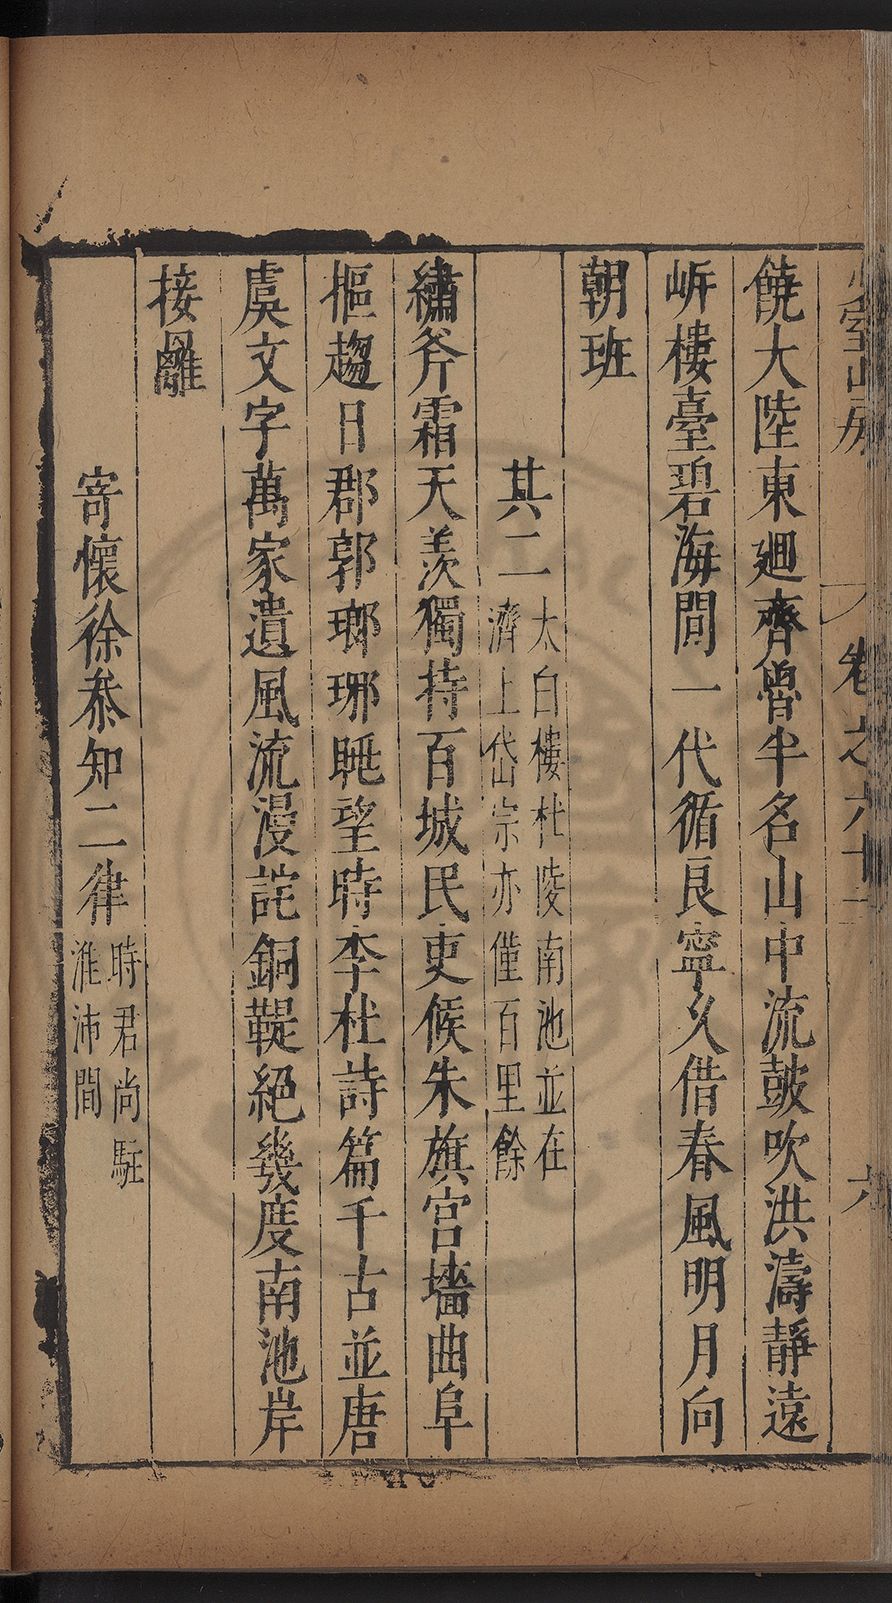 饒大陸東廻齊魯半名山中流鼓吹洪濤靜遠
㟁樓臺碧海間一代循良寧久借春風明月向
朝班
其二太白樓杜陵南池並在
濟上岱宗亦僅百里餘
繡斧霜天羨獨持百城民吏候朱旗宫墻曲阜
樞趨日郡郭瑯琊眺望時李杜詩篇千古並唐
虞文字萬家遺風流漫詫銅鞮絕幾度南池岸
接䍦
寄懷徐叅知二律時君尚駐
淮沛間
室山房
卷之六十
六